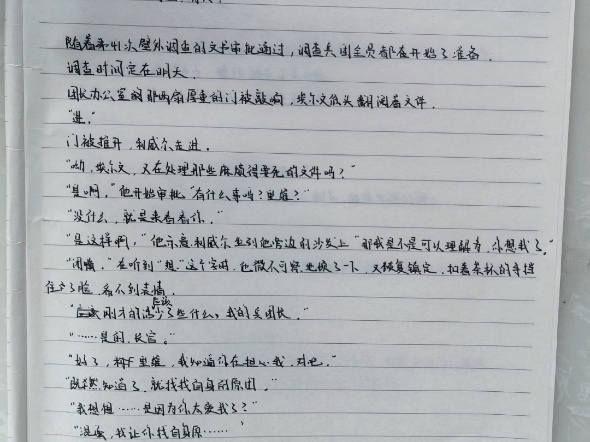 随着第41次壁外调查的文书审批通过，调查兵团全员都在开始了准备．
调查时间定在明天．
团长办公室的那两扇厚重的门被敲响，埃尔文低头翻阅着文件．
"进．"
门被推开，利威尔走进．
"呦，埃尔文，又在处理那些麻烦得要死的文件吗？"
"是啊，"他开始审批，"有什么事吗？里维？"
"没什么，就是来看看你．"
"是这样啊，"他示意利威尔坐到他旁边的沙发上"那我是不是可以理解为，你想我了．"
"闭嘴．"在听到"想"这个字时，他微不可察地愣了一下，又恢复镇定，扣着茶杯的手挡
住了脸，看不到表情．
刚才的话少了些什么，我的兵团长．"
"……是的，长官．"
"好了，里维，我知道你在担心我，对吧．"
"既然知道了，就找找自身的原因．"
"我想想……是因为你太爱我了？"
"混蛋，我让你找自身原……